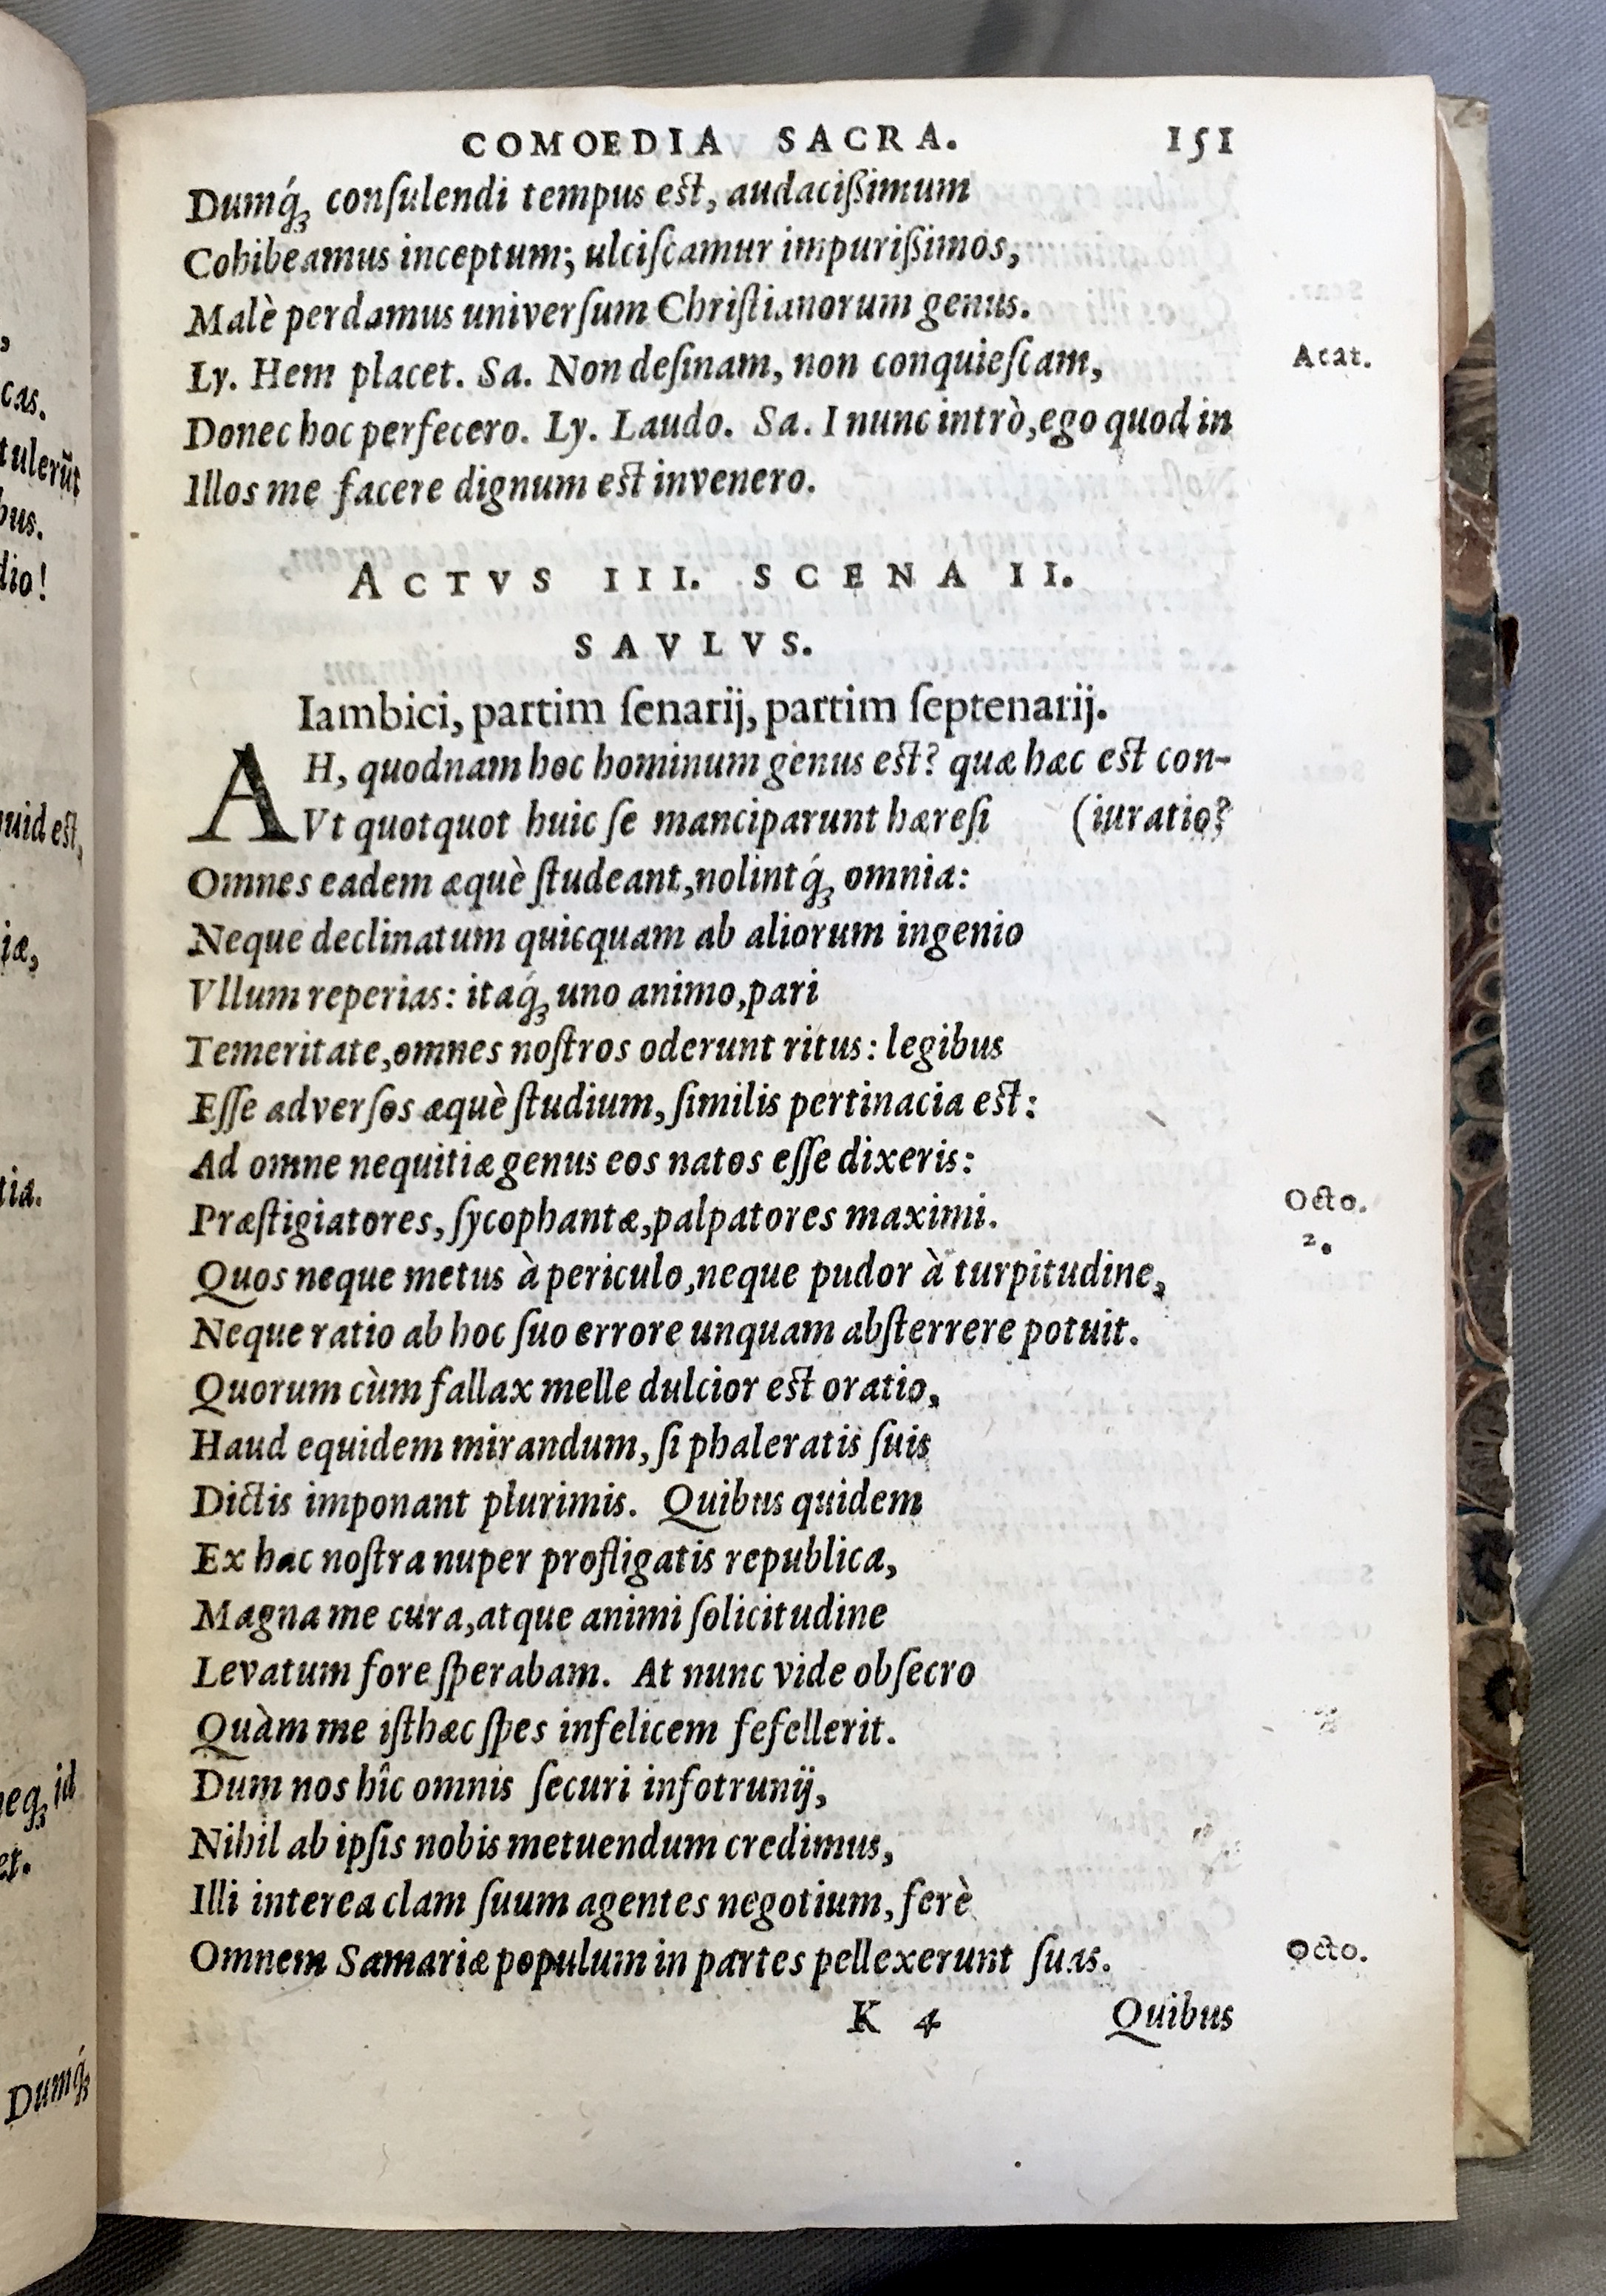 COMOEDIA SACRA. 151
Dumq́; conſulendi tempus eſt, audacißimum
Cohibeamus inceptum; ulciſcamur impurißimos,
Malè perdamus univerſum Chriſtianorum genus.
Ly. Hem placet. Sa. Non deſinam, non conquieſcam, Acat.
Donec hoc perfecero. Ly. Laudo. Sa. I nunc intrò, ego quod in
Illos me facere dignum eſt invenero.
ACTVS III. SCENA II.
SAVLVS.
Iambici, partim ſenarij, partim ſeptenarij.
AH, quodnam hoc hominum genus eſt? quæ hæc eſt con-
Vt quotquot huic ſe manciparunt hæreſi (iuratio?
Omnes eadem æquè ſtudeant, nolintq́; omnia:
Neque declinatum quicquam ab aliorum ingenio
Vllum reperias: itaq́; uno animo, pari
Temeritate, omnes noſtros oderunt ritus: legibus
Eſſe adverſos æquè ſtudium, ſimilis pertinacia eſt:
Ad omne nequitiæ genus eos natos eſſe dixeris:
Præſtigiatores, ſycophantæ, palpatores maximi. Octo.
2.
Quos neque metus à periculo, neque pudor à turpitudine,
Neque ratio ab hoc ſuo errore unquam abſterrere potuit.
Quorum cùm fallax melle dulcior eſt oratio,
Haud equidem mirandum, ſi phaleratis ſuis
Dictis imponant plurimis. Quibus quidem
Ex hac noſtra nuper profligatis republica,
Magna me cura, atque animi ſolicitudine
Levatum fore ſperabam. At nunc vide obſecro
Quàm me iſthæc ſpes infelicem fefellerit.
Dum nos hîc omnis ſecuri infotrunij,
Nihil ab ipſis nobis metuendum credimus,
Illi interea clam ſuum agentes negotium, ferè
Omnem Samariæ populum in partes pellexerunt ſuas. Octo.
K 4 Quibus
,
cas.
tulerūt
bus.
dio!
quid eſt,
iæ,
tia.
neq; id
et.
Dumq́;